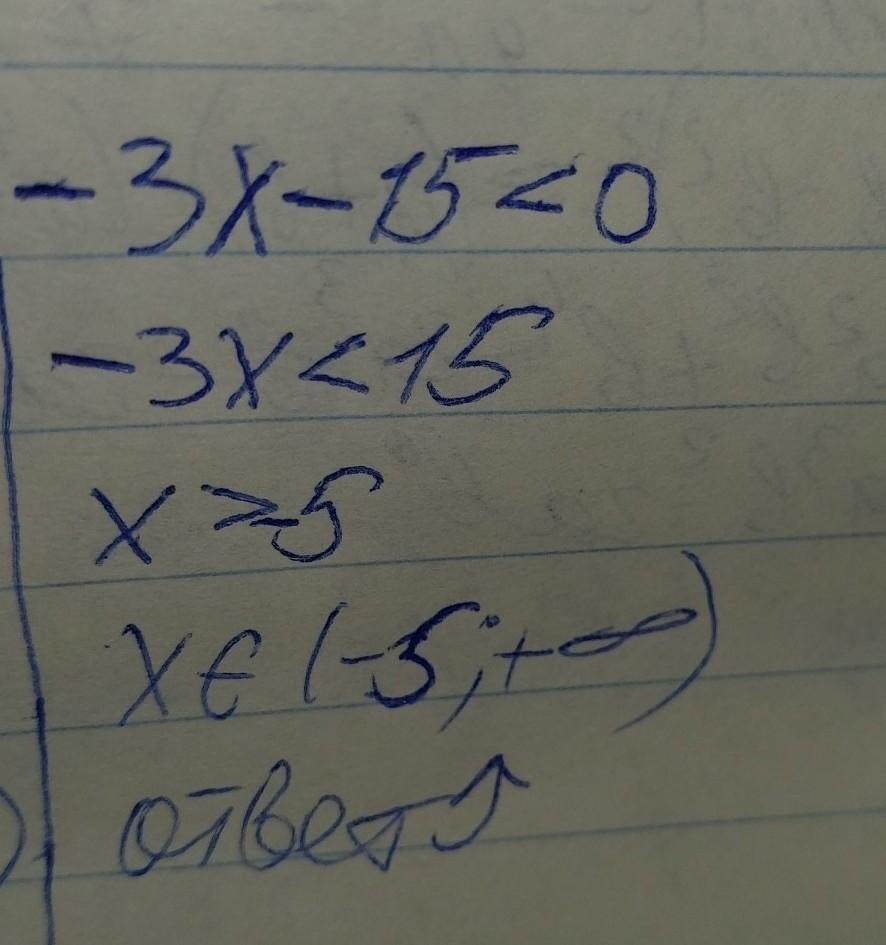 -3x-15<0
-3x<15
x>-5
x∈(-5;+∞)
ответ↑